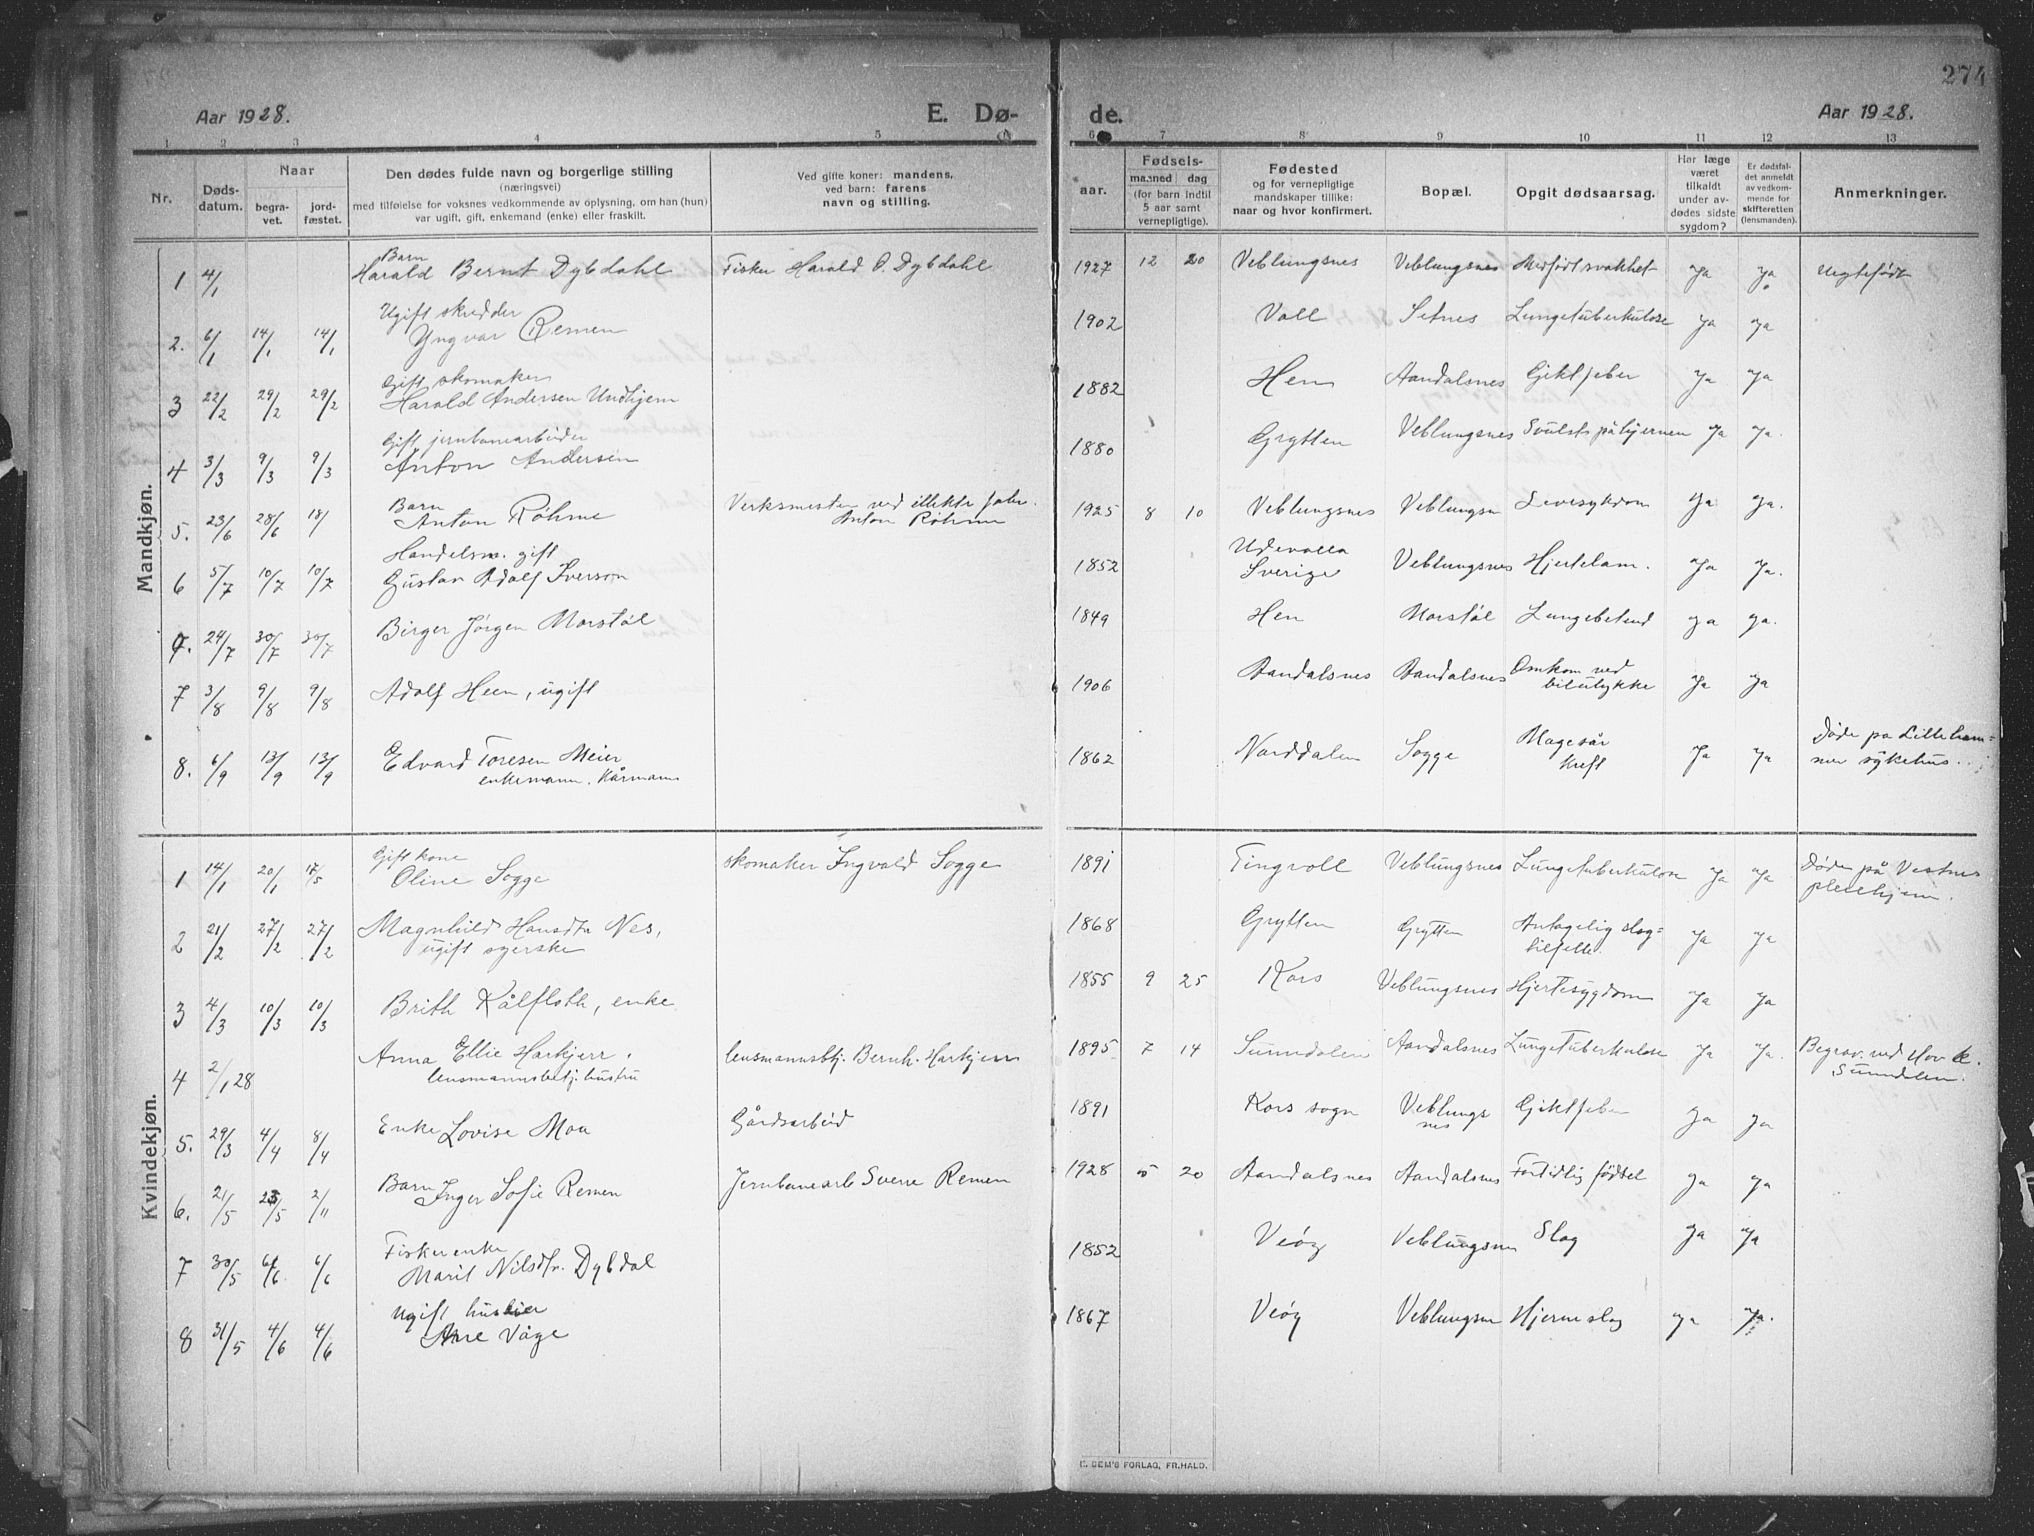 274
Aar 1928. E. Dø- de. Aar 1928.
1 2 3 4 5 6 7 8 9 10 11 12 13
Nr.
Døds-
datum.
Naar
begra-
vet.
jord-
fæstet.
Den dødes fulde navn og borgerlige stilling
(næringsvei)
med tilføielse for voksnes vedkommende av oplysning, om han (hun)
var ugift, gift, enkemand (enke) eller fraskilt.
Ved gifte koner: mandens,
ved barn: farens
navn og stilling.
aar.
Fødsels-
maaned dag
(for barn indtil
5 aar samt
vernepligtige).
Fødested
og for vernepligtige
mandskaper tillike:
naar og hvor konfirmert.
Bopæl.
Opgit dødsaarsag.
Har læge
været
tilkaldt
under av-
dødes sidste
sygdom?
Er dødsfal-
det anmeldt
av vedkom-
mende for
skifteretten
(lensmanden).
Anmerkninger.
Mandkjøn.
Barn
1 4/1 Harald Bernt Dybdahl Fisker Harald O. Dybdahl 1927 12 20 Veblungsnes Veblungsnes Medfødt svakhet ja ja Uegtefødt
Ugift skredder
2. 6/1 14/1 14/1 Yngvar Remen 1902 Voll Setnes Lungetuberkulose ja ja
Gift skomaker
3 22/2 29/2 29/2 Harald Andersen Undhjem 1882 Hen Aandalsnes Giktfeber ja ja
Gift jernbanearbeider
4 3/3 9/3 9/3 Anton Andersen 1880 Grytten Veblungsnes Svulst på hjernen ja ja.
Barn
5. 23/6 28/6 18/ Anton Røhme Verksmester ved elektr. fabr. 1925 8 10 Veblungsnes Veblungsn ja ja.
Anton Røhme
Handelsm. gift
6 5/7 10/7 10/7 Gustav Adolf Iverson 1852 Udevalla Veblungsnes Hjertelam. ja ja.
Sverige
7. 24/7 30/7 30/7 Birger Jørgen Morstøl 1849 Hen Morstøl Lungebetend ja ja.
7 3/8 9/8 9/8 Adolf Heen, ugift 1906 Aandalsnes Aandalsnes Omkom ved ja ja
bilulykke
8. 6/9 13/9 13/9 Edvard Toresen Meier 1862 Norddalen Sogge Magesår ja ja Døde på Lilleham=
enkemann. Kårmann kreft mer sykehus.
Kvindekjøn.
Gift kone
1 14/1 20/1 17/5 Oline Sogge skomaker Ingvald Sogge 1891 Tingvoll Veblungsnes Lungetuberkulose ja ja Døde på Vestnes
pleiehjem.
2 21/2 27/2 27/2 Magnhild Hansdtr Nes, 1868 Grytten Grytten Antagelig slag= ja ja
ugift syerske tilfelle.
3 4/3 10/3 10/3 Brith Kålfloth, enke 1855 9 25 Kors Veblungsnes Hjertesygdom ja ja
4 2/1 28 Anna Ellie Harkjerr, lensmannsbtj. Bernh. Harkjerr 1895 7 14 Sunndalen Aandalsnes Lungetuberkulose ja ja. Begrav. ved Hov k.
lensmannsbetj. hustru Sunndalen.
5. 29/3 4/4 8/4 Enke Lovise Moa Gårdsarbeid 1891 Kors sogn Veblungs Giktfeber ja ja
nes
6. 21/5 23/5 2/11 Barn Inger Sofie Remen Jernbanearb Sverre Remen 1928 5 20 Aandalsnes Aandalsnes Fortidlig fødsel ja ja
Fiskerenke
7 30/5 6/6. 6/6 Marit Nilsdtr. Dybdal 1852 Veøy Veblungsnes Slag ja ja
Ugift
8 31/5 4/6 4/6 Ane Våge 1867 Veøy Veblungsn Hjerneslag ja ja.
E. SEM'S FORLAG, FR.HALD.